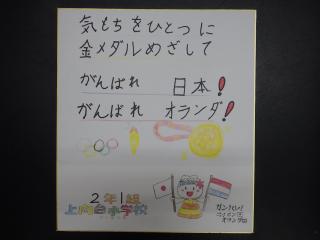 気もちをひとつに
金メダルめざして
がんばれ 日本!
がんばれ オランダ!
2年1組
上向台小学校
ガンバレ!